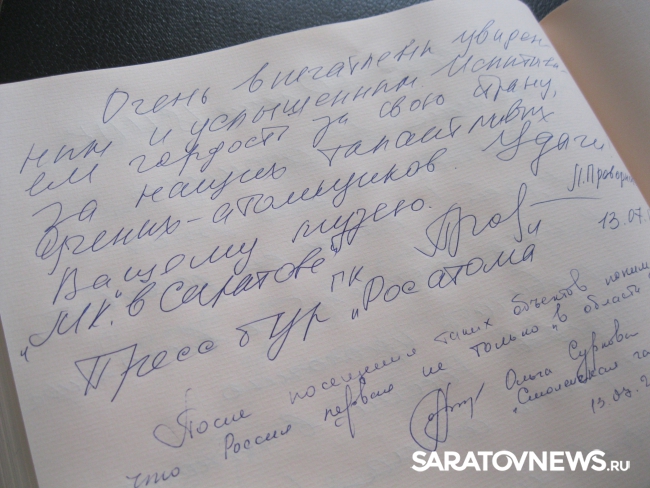 Очень впечатлены увиден-
ным и услышенным. Испытыва-
ем гордость за свою страну,
за наших талантливых
ученых-атомщиков. Удачи
Вашему музею.
М. Правдина
13.07.
„МК" в Саратове"
Пресс тур ПК „Росатома"
После посещения таких объектов поним
что Россия первая не только „в области
Ольга Суркова
„Смоленская га
13.07.2
SARATOVNEWS.RU